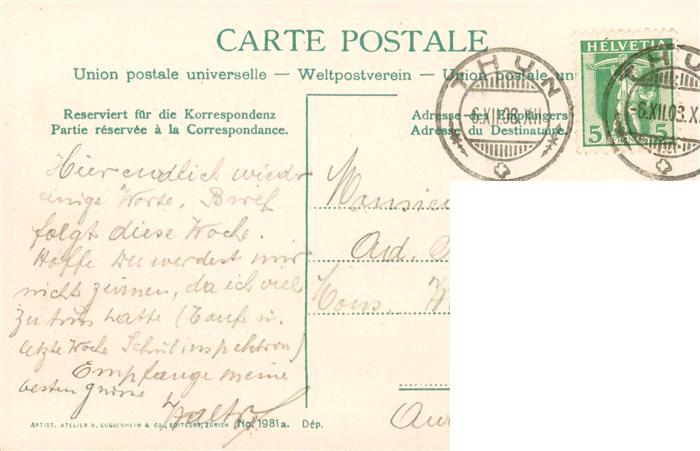 CARTE POSTALE
Union postale universelle — Weltpostverein — Union postale un
HELVETIA
5 5
THUN
-6.XII.08.XII
THU
-6.XII.08.X
Reserviert für die Korrespondenz
Partie réservée à la Correspondance.
Adresse des Empfängers
Adresse du Destinataire.
Hier endlich wieder
einige Worte. Brief
folgt diese Woche.
Hoffe Du werdest mir
nicht zürnen, da ich viel
zu tun hatte (Taufe u.
letzte Woche Schulinspektion)
Empfange meine
besten Grüsse
Monsieu
Aud.
ARTIST. ATELIER H. GUGGENHEIM & CO., EDITEURS, ZÜRICH No. 1981a. Dép.